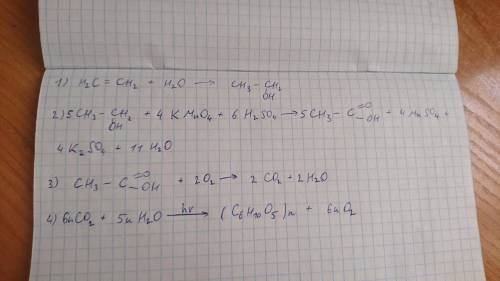 1) H₂C = CH₂ + H₂O → CH₃ – CH₂
OH
2) 5CH₃ – CH₂ + 4 KMnO₄ + 6 H₂SO₄ → 5CH₃ – C =O – OH + 4MnSO₄ +
OH
4K₂SO₄ + 11 H₂O
3) CH₃ – C =O – OH + 2O₂ → 2 CO₂ + 2H₂O
4) 6nCO₂ + 5n H₂O hν → (C₆H₁₀O₅)n + 6nO₂